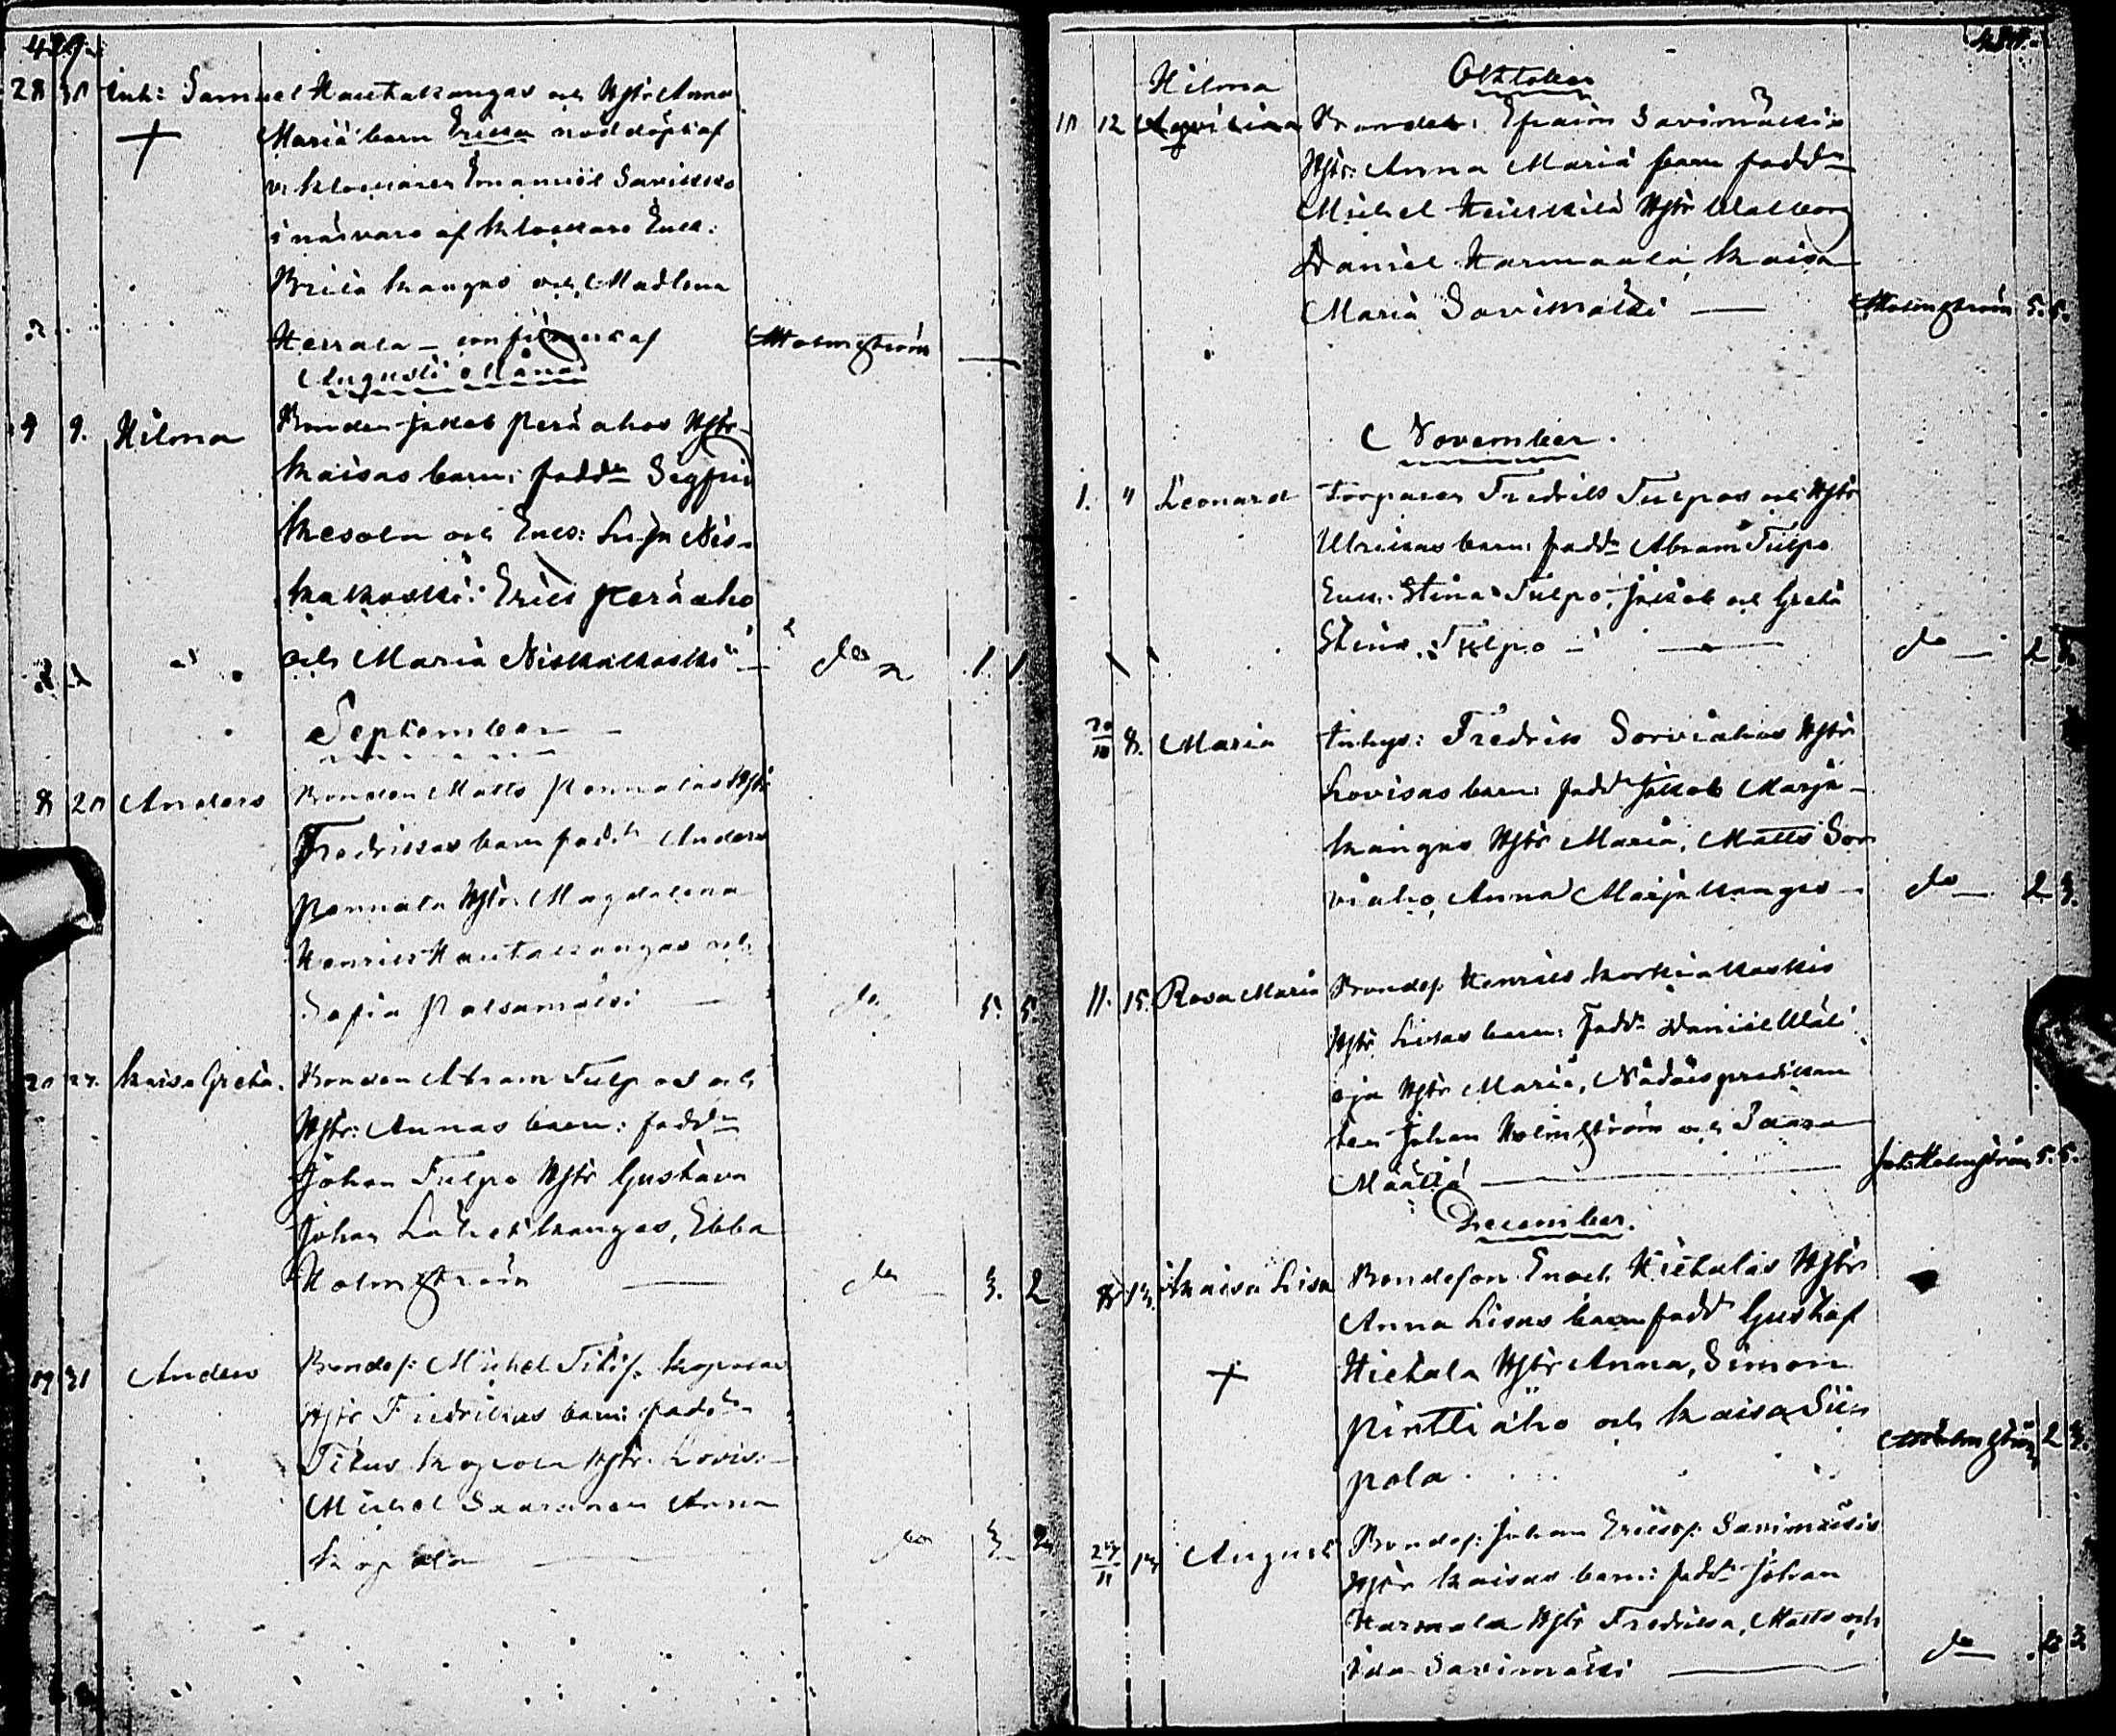 429.
28 31 Inh: Samuel Hautakangas och Hstr Anna
Maria barn Erika nöddöpt af
v. klockaren Emanuel Savikko
i närvaro af klockare Enk:
Brita Kangas och Madlena
Herrala – confirmerat af Holmström
Augusti Månad
9 9. Hilma Bonden Jakob Peräahos Hstr
Kaisas barn; fadd: Sigfrid
Kesola och Enk: Lisa Nis-
kakoski: Erik Peräaho
och Maria Niskakoski – do 1. 1
September
8 20 Anders Bonden Matts Pennalas Hstr
Fredrikas barn fadd: Anders
Pennala Hstr. Magdalena
Henrik Hautakangas och
Sofia Palsamäki – do 5. 5.
20 27. Kaisa Greta. Bonden Abram Tulpos och
Hstr: Annas barn: fadd:
Johan Tulpo Hstr Gustava
Johan Lähetkangas, Ebba
Holmström – do 3. 2
31 Anders Bondes: Michel Titis. Kopolas
Hstr Fredrikas barn: fadd:
Titus Kopola Hstr. Lovis:
Michel Saaranen Anna
Kopola – do 3. 2.
Oktober
Hilma
11 12 Bonden: Efraim Savimäkis
Hstr: Anna Maria barn fadd:
Michel Heikkilä Hstr Walborg
Daniel Harmaala, Kaisa
Maria Savimäki – Holmström 5. 5.
November.
1. " Leonard Torparen Fredrik Tulpos och Hstr
Ulrikas barn: fadd: Abram Tulpo
Enk: Stina Tulpo, Jakob och Greta
Stina Tulpo – do – 2
20/10 8. Maria Inhys: Fredrik Sorviahos Hstr
Lovisas barn: fadd: Jakob Marja-
kangas Hstr Maria, Matts Sor
viaho, Anna Marjakangas – do – 2 3.
11. 15. Rosa Maria Bondes: Henrik Korkiakoskis
Hstr Lisas barn: Fadd: Daniel Wäli
oja Hstr Maria, Nådårspredikan
ten Johan Holmström och Saara
Määttä – Joh: Holmström 5. 5.
December.
8 13. Kaisa Lisa Bondeson Enoch Hietalas Hstr
Anna Lisas barn fadd: Gustaf
Hietala Hstr Anna, Simon
Pinttiaho och Kaisa Sii
pola. Holmström 2 3.
27/11 13 August Bondes: Johan Eriks. Savimäkis
Hstr Kaisas barn: fadd: Johan
Harmala Hstr Fredrika, Matts och
Ida Savimäki – do – 3